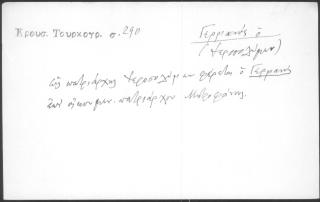 Κρουσ. Τουρκογρ. σ. 290
Γερμανός ὁ
(Ἱεροσολύμων)
ὡς πατριάρχης Ἱεροσολύμων φέρεται ὁ Γερμανὸς
ἐπὶ οἰκουμεν. πατριάρχου Μητροφάνης.